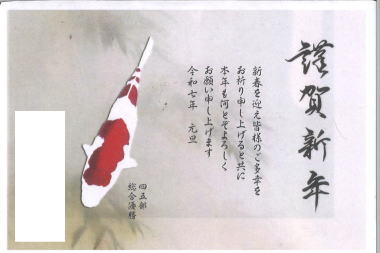 謹賀新年
新春を迎え皆様のご多幸を
お祈り申し上げると共に
本年も何とぞよろしく
お願い申し上げます
令和七年　元旦
四五部
総合優勝